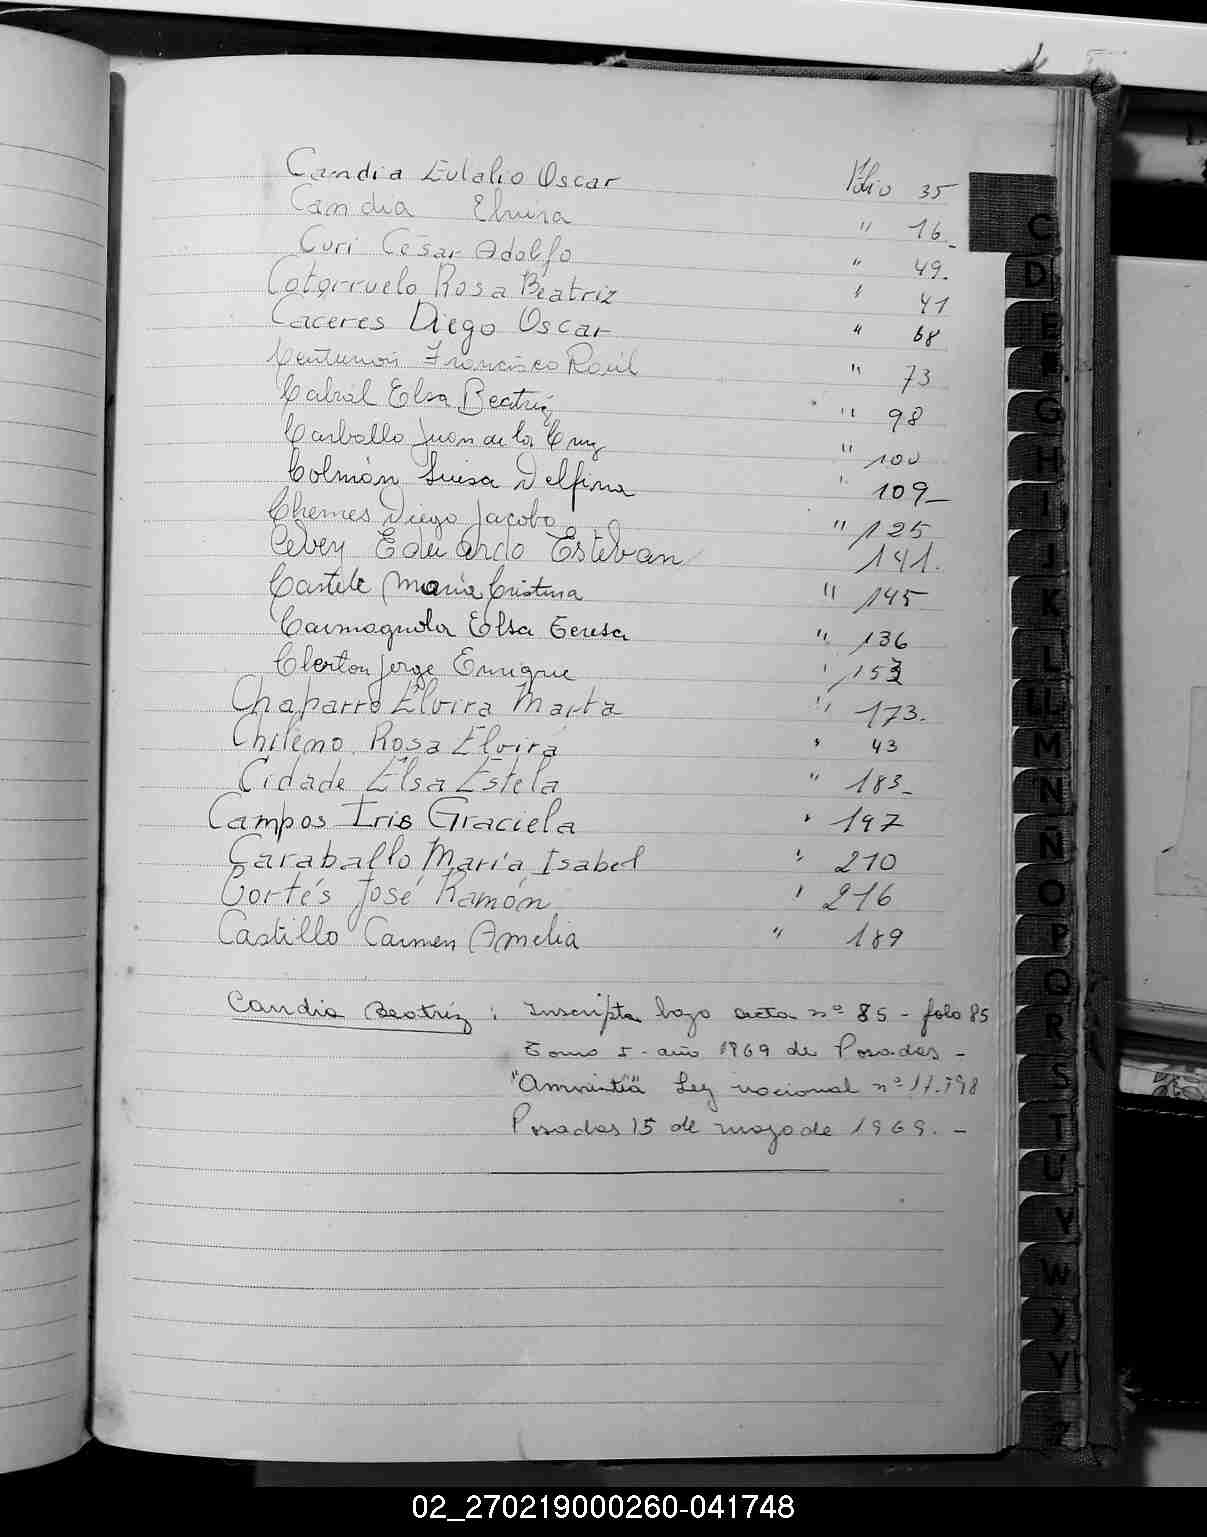 Candia Eulalio Oscar Folio 35
Candia Elvira " 16_
Curi César Adolfo " 49.
Cotorruelo Rosa Beatriz " 41
Caceres Diego Oscar " 68
Francisco Raúl " 73
Cabral Elsa Beatriz " 98
Carballo Juan de la Cruz " 100
Colmán Luisa Delfina " 109_
Chemes Diego Jacobo " 125
Cevey Eduardo Esteban 141.
María Cristina " 145
Carmagnola Elsa Teresa " 136
Jorge Enrique "
Chaparro Elvira Marta " 173.
Chileno Rosa Elvira " 43
Cidade Elsa Estela " 183_
Campos Iris Graciela " 197
Caraballo María Isabel " 210
Cortés José Ramón " 216
Castillo Carmen Amelia " 189
Candia Beatríz : Inscripta bajo acta nº 85 - folo 85
Tomo I - año 1969 de Posadas -
"Amnistía" Ley nacional nº
Posadas 15 de mayo de 1969. -
C
D
E
F
G
H
I
J
K
L
LL
M
N
Ñ
O
P
Q
R
S
T
U
V
W
Y
Z
02_270219000260-041748